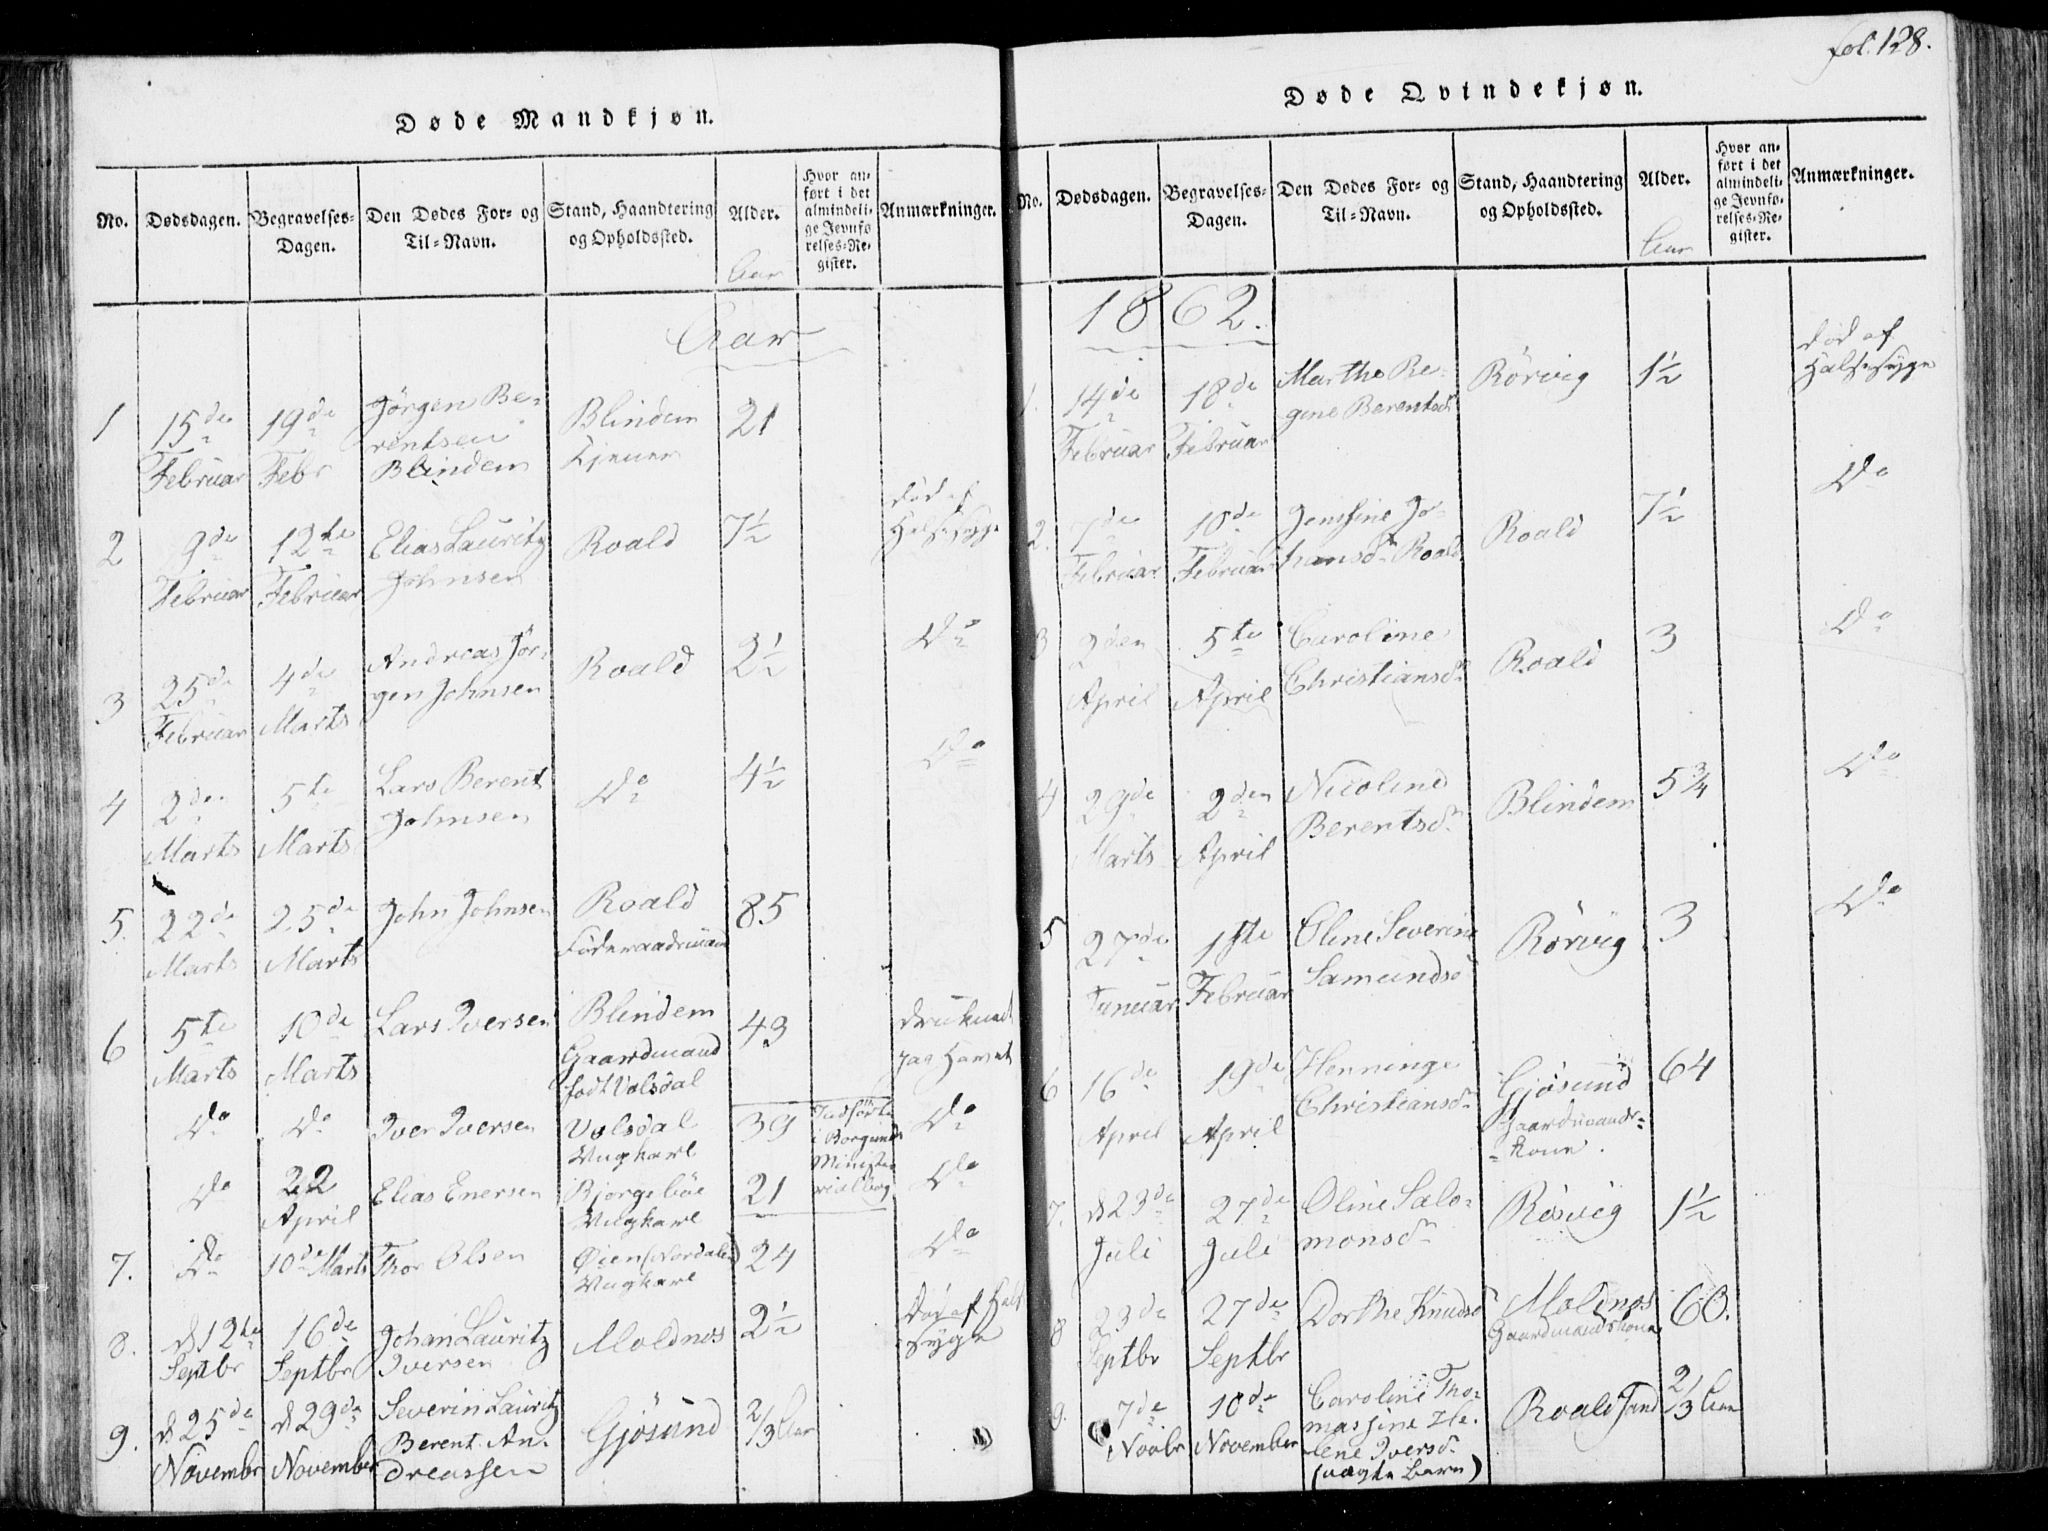 fol. 128.
Døde Mandkjøn.
No.
Dødsdagen.
Begravelses-
Dagen.
Den Dødes For- og
Til-Navn.
Stand, Haandtering
og Opholdssted.
Alder.
Aar
Hvor an-
ført i det
almindeli-
ge Jevnfø
relses-Re-
gister.
Anmærkninger.
Aar
1
15de
Februar
19de
Febr
Jörgen Be-
rentsen
Blindem
Blindem
Tjener
21
2
9de
Februar
12te
Februar
Elias Lauritz
Johnsen
Roald
7½
død af
Halssyge
3
25de
Februar
4de
Marts
Andreas Jör-
gen Johnsen
Roald
2½
Do
4
2den
Marts
5te
Marts
Lars Berent
Johnsen
Do
4½
Do
5.
22de
Marts
25de
Marts
John Johnsen
Roald
Föderaadmand
85
6
5te
Marts
10de
Marts
Lars Iversen
Blindem
Gaardmand
født Volsdal
43
druknet
paa Havet
Do
Do
Iver Iversen
Volsdal
Ungkarl
39
Indført
i Borgunds
Ministe
rialbog
Do
Do
22
April
Elias Enersen
Bjorgeböe
Ungkarl
21
Do
7.
Do
10de Marts
Thor Olsen
Øien (Nordalen)
Ungkarl
24
Do
8.
d 12te
Septbr
16de
Septbr
Johan Lauritz
Iversen
Moldnes
2½
Död af Hals
syge
9.
d 25de
Novembr
d 29de
November
Severin Lauritz
Berent An-
dreassen
Gjösund
2/3 Aar
Døde Qvindekjøn.
No.
Dødsdagen.
Begravelses-
Dagen.
Den Dødes For- og
Til-Navn.
Stand, Haandtering
og Opholdssted.
Alder.
Aar
Hvor an-
ført i det
almindeli-
ge Jevnfø-
relses-Re-
gister.
Anmærkninger.
1862.
1.
14de
Februar
18de
Februar
Marthe Re-
gine Berentsd.
Rörvig
1½
død af
Halssyge
2.
7de
Februar
10de
Februar
Jensine Jo-
hansd. Roald
Roald
7½
Do
3
2den
April
5te
April
Caroline
Christiansd.
Roald
3
Do
4
29de
Marts
2den
April
Nicoline
Berentsd.
Blindem
5¾
Do
5
27de
Januar
1ste
Februar
Oline Severine
Samundsd
Rörvig
3
Do
6
16de
April
19de
April
Henninge
Christiansd.
Gjösund
Gaardmands-
kone.
64
7.
d 23de
Juli
27de
Juli
Oline Salo-
monsd.
Rörvig
1½
8
23de
Septbr
27de
Septbr
Dorthe Knudsd
Moldnes
Gaardmandskone
60.
9.
7de
Novbr
10de
November
Caroline Tho-
massine He-
lene Iversd.
(uægte Barn)
Roaldsand
2/3 Aar